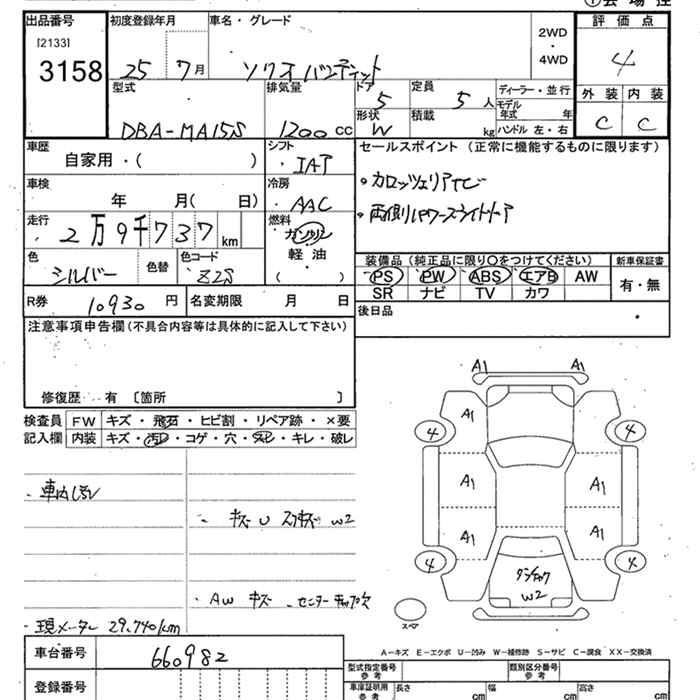 出品番号
[2133]
3158
初度登録年月
25 7月
車名・グレード
ソリオ バンディット
2WD
・
4WD
評 価 点
4
外 装 内 装
C C
型式
DBA-MA15S
排気量
1200 cc
ドア
5
定員
5 人
形状
W
積載
kg
ディーラー・並 行
モデル
年式 年
ハンドル 左・右
車歴
自家用・( )
シフト
IAT
車検
年 月( 日)
冷房
AAC
走行
2万9千737km
燃料
ガソリン
軽 油
( )
色
シルバー
色替
色コード
Z2S
セールスポイント (正常に機能するものに限ります)
。カロッツェリアナビ
。両側パワースライドドア
装備品 (純正品に限り○をつけてください)
PS PW ABS エアB AW
SR ナビ TV カワ
新車保証書
有・無
R券
10930 円
名変期限 月 日
後日品
注意事項申告欄(不具合内容等は具体的に記入して下さい)
修復歴・有 〔箇所 〕
検査員
記入欄
FW キズ・飛石・ヒビ割・リペア跡・×要
内装 キズ・汚レ・コゲ・穴・スレ・キレ・破レ
・車内汚レ
・キズ U スリキズ W2
・AW キズ ・センターキャップ欠
・現メーター 29,740km
A1 A1
A1
4 4
A1 A1
A1 A1
4 4
W2
スペア
A-キズ E-エクボ U-凹み W-補修跡 S-サビ C-腐食 XX-交換済
車台番号
660982
登録番号
型式指定番号
参 考
類別区分番号
参 考
車庫証明用
参 考
長さ cm
幅 cm
高さ cm